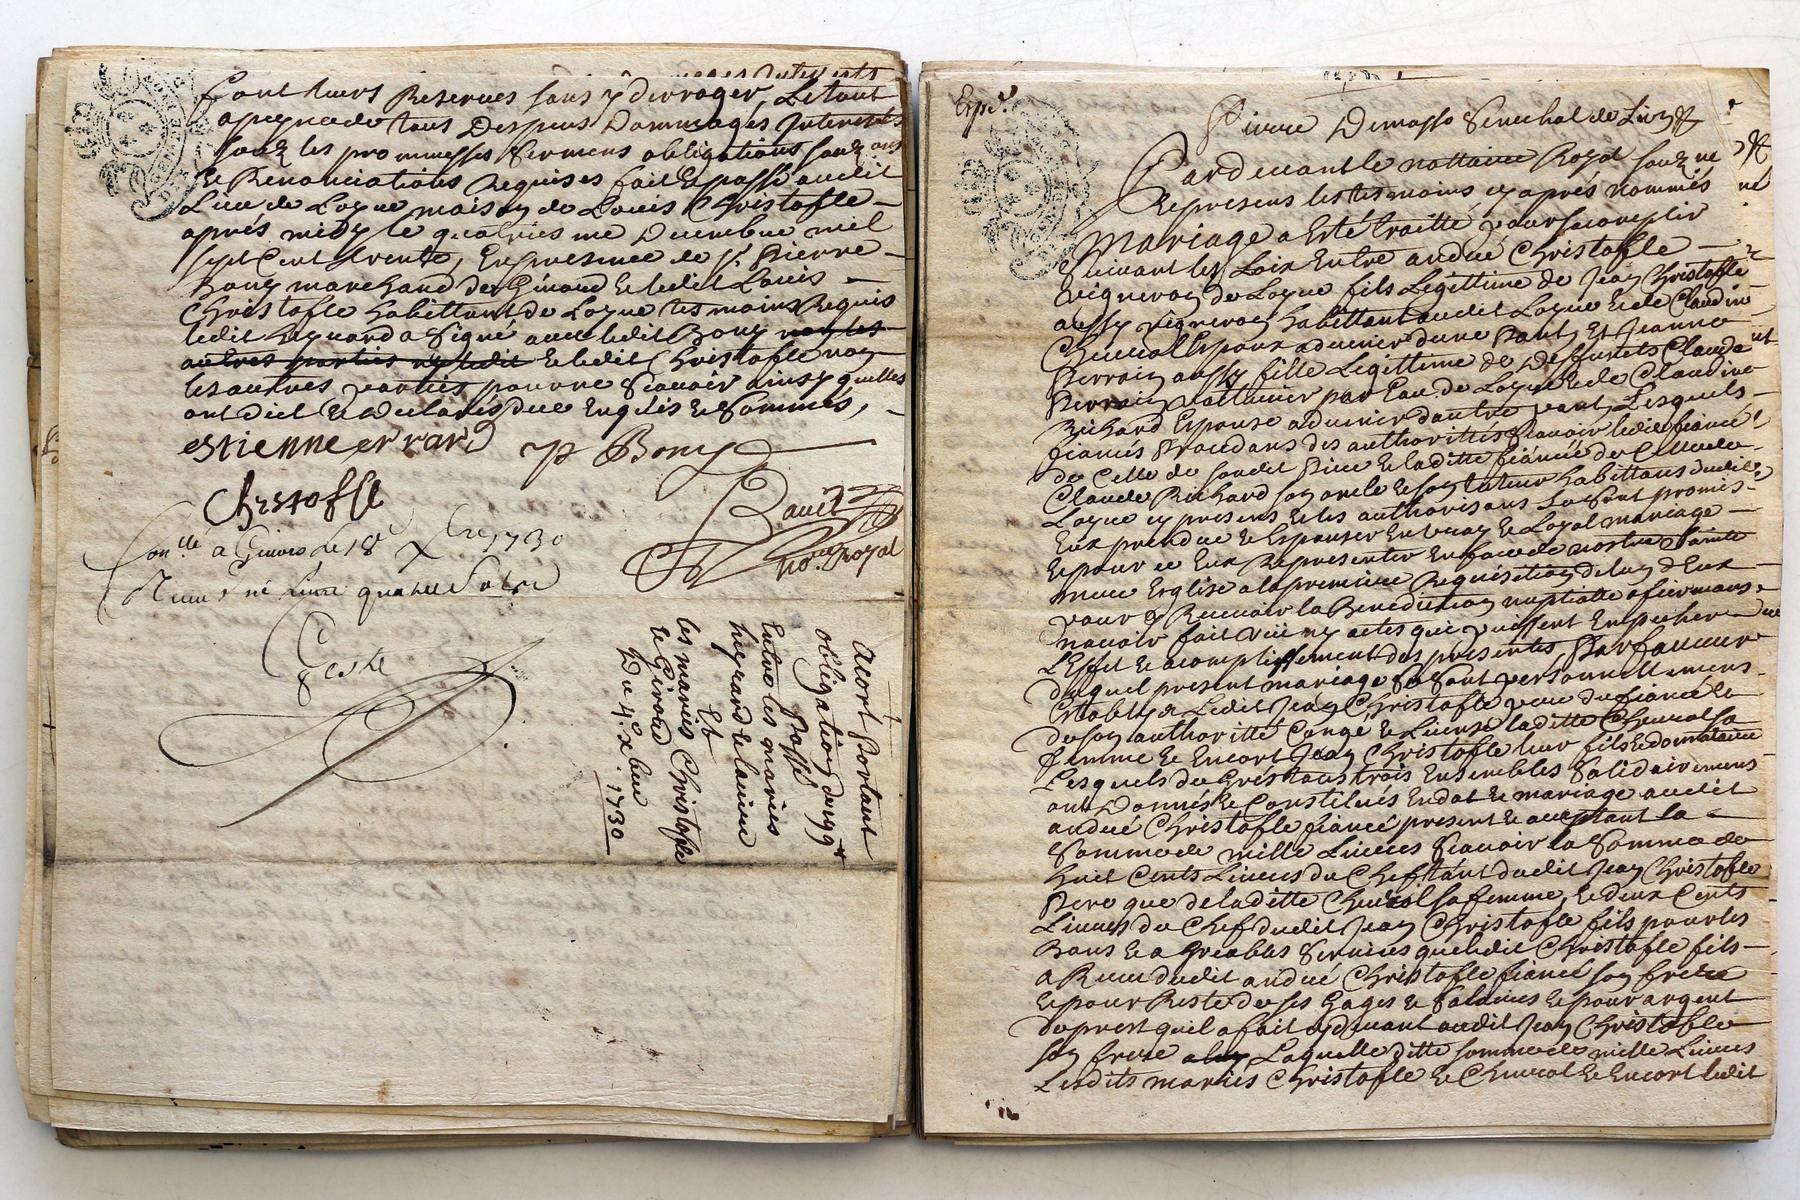 font leurs Reserves sans y derroger, Le tout
a peyne de tous Despens Dommages Interests
soubz les prommesses sermens obligations soubz
Et Renonciations Requises fait Et passé audit
Lieu de Loyue maison de Louis Christofle
aprés midy le quatriesme Decembre mil
sept Cent trente, En presence de Sr. Pierre
Bony marchand de Ginaud Et ledit Louis
Christofle habittant de Loyue tesmoins Requis
ledit heyrard a signé avec ledit Bony non les
autres parties ny ledit Et ledit Christofle non
les autres parties pour ne sçavoir ainsy quelles
ont dict Et declarés de ce Enquis Et sommés,
estienne errard p Bony
Christofle
Bauit
no.re Royal
Con.lle a le 18e Xbre 1730
Receu une livre quatre sols
Geste
acort Portant
obligation de 199 tt
Passé
Entre les mariés
heyrard Et
Et
les mariés Christofle
Et Giraud
Du 4e Xbre
1730
Exp.é
Pierre Demasso Senechal de Lion
Pardevant le nottaire Royal soubz ne
Et presens les tesmoins cy aprés nommés
Mariage a Esté traitté pour s'acomplir
suivant les Loix Entre andré Christofle
vigneron de Loyue fils Legittime de Jean Christofle
aussy vigneron habittant audit Loyue Et de Claudine
Chevrol Espoux advenir d'une Part, Et Jeanne
Perroin aussy fille Legittime de deffunts Claude
Perroin voiturier par Eau de Loyue Et de Claudine
Richard Espouse advenir d'autre part, Lesquels
fiancés procedans des authorittés sçavoir ledit fiancé
de Celle de sondit Pere Et laditte fiancée de Celle de
Claude Richard son oncle Et son tuteur habittans dudit
Loyue cy presens Et les authorisans se sont promis
Eux prendre Et Espouser En vray Et Loyal mariage
Et pour ce Eux Representer En face de nostre sainte
mere Esglise a la premiere Requisition de l'un d'Eux
pour y Recevoir la Benediction nuptialle affirmans
n'avoir fait ny actes qui puissent Empescher
L'effet Et acomplissement des presentes, En faveur
duquel present mariage se sont personnellement
Establys Ledit Jean Christofle pere du fiancé Et
de son authoritté Congé Et Licence laditte Chevrol sa
femme Et Encort Jean Christofle leur fils
Lesquels de Gré tous trois Ensembles solidairement
ont Donnés Et Constitués En dot Et mariage audit
andré Christofle fiancé present Et acceptant la
somme de mille Livres sçavoir la somme de
huit Cents Livres du Chef tant dudit Jean Christofle
Pere que de laditte Chevrol sa femme, Et deux Cents
Livres du Chef dudit Jean Christofle fils pour les
Bons Et agreables services que ledit Christofle fils
a Receu dudit andré Christofle fiancé son frere
Et pour Reste de ses Gages Et salaires Et pour argent
de prest quil a fait cydevant audit Jean Christofle
son frere Laquelle ditte somme de mille Livres
Lesdits mariés Christofle Et Chevrol Et Encort ledit